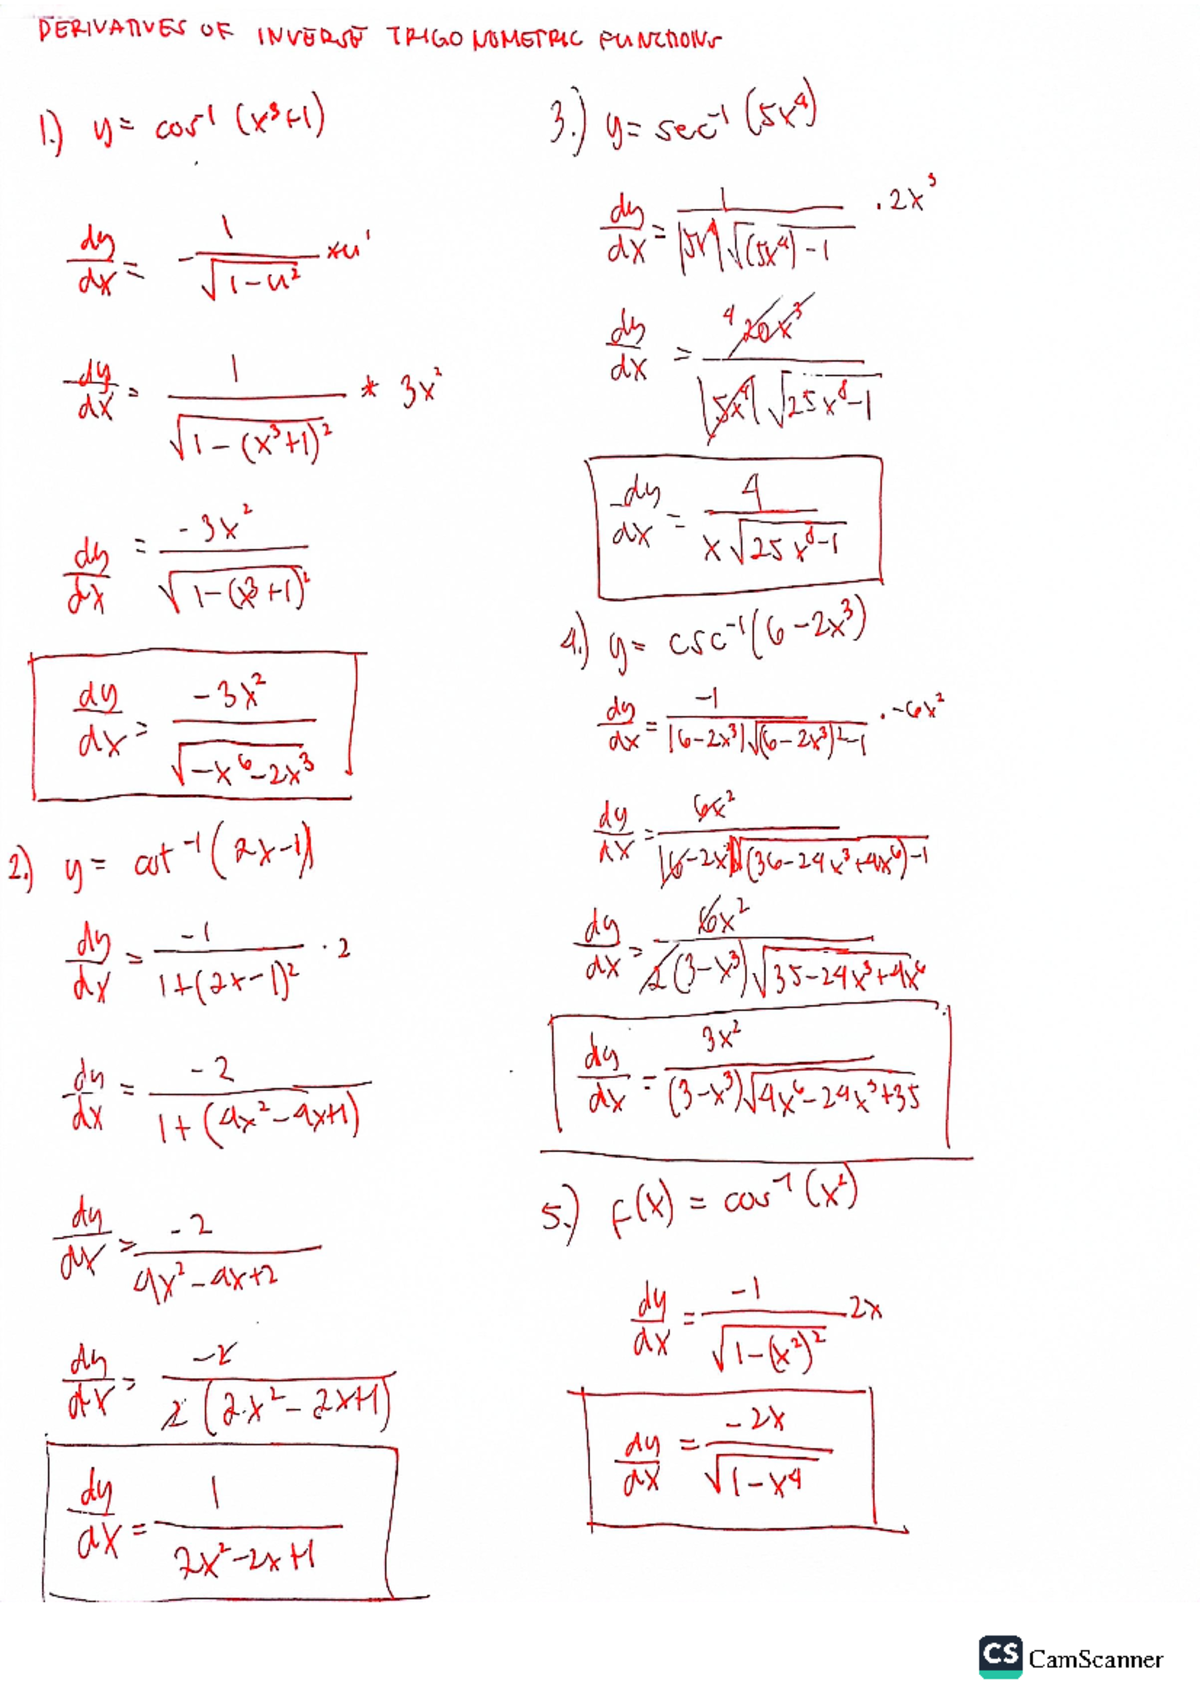 DERIVATIVES OF INVERSE TRIGONOMETRIC FUNCTIONS
1.) y = cos⁻¹ (x³+1)
dy/dx = - 1/√(1-u²) * u'
dy/dx = 1/√(1-(x³+1)²) * 3x²
dy/dx = -3x²/√(1-(x³+1)²)
dy/dx = -3x²/√(-x⁶-2x³)
2.) y = cot⁻¹ (2x-1)
dy/dx = -1/(1+(2x-1)²) · 2
dy/dx = -2/(1+(4x²-4x+1))
dy/dx = -2/(4x²-4x+2)
dy/dx = -2/(2(2x²-2x+1))
dy/dx = 1/(2x²-2x+1)
3.) y = sec⁻¹ (5x⁴)
dy/dx = 1/(|5x⁴|√((5x⁴)-1)) · 2x³
dy/dx = 4 20x³/(|5x⁴|√(25x⁸-1))
dy/dx = 4/(x√(25x⁸-1))
4.) y = csc⁻¹(6-2x³)
dy/dx = -1/(|6-2x³|√((6-2x³)²-1)) · -6x²
dy/dx = 6x²/(|6-2x³|√((36-24x³+4x⁶)-1))
dy/dx = 6x²/(2(3-x³)√(35-24x³+4x⁶))
dy/dx = 3x²/((3-x³)√(4x⁶-24x³+35))
5.) f(x) = cos⁻¹ (x²)
dy/dx = -1/√(1-(x²)²) 2x
dy/dx = -2x/√(1-x⁴)
CS CamScanner